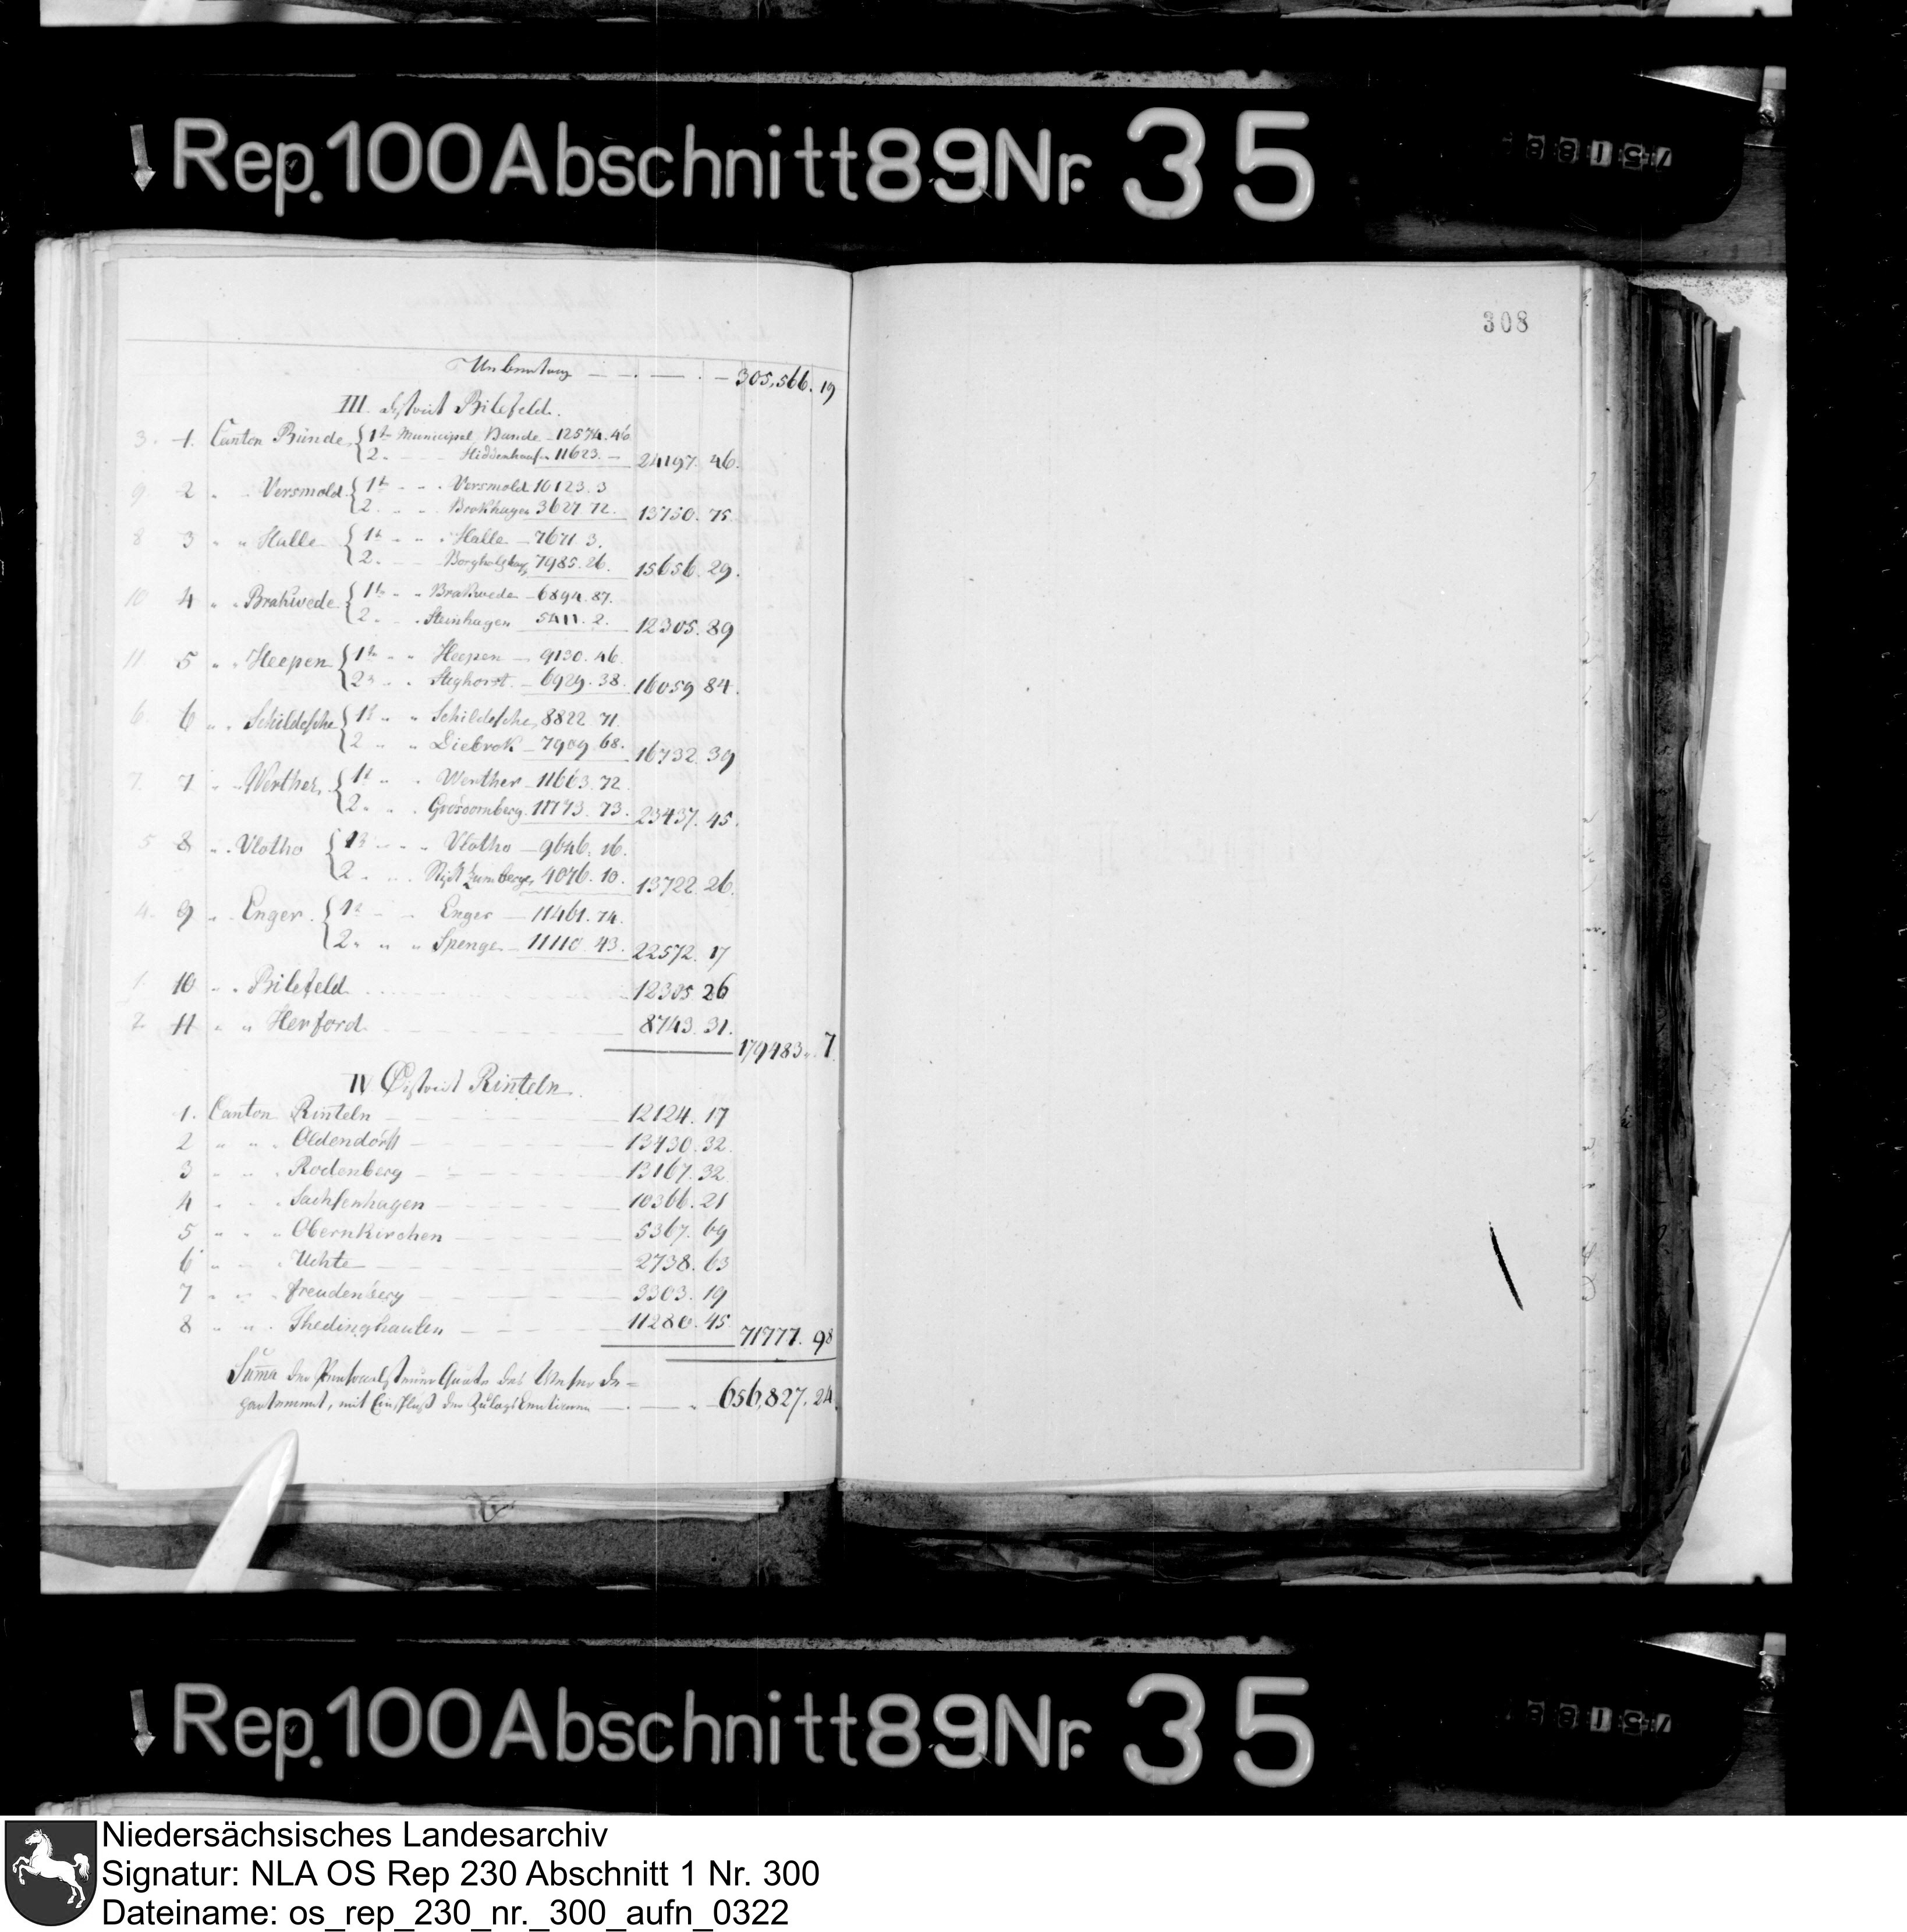 Rep. 100 Abschnitt 89 Nr. 35
308
305,566. 19
III. District Bilefeld.
3. 1. Canton Bünde 1t Municipal Bünde 12574. 46
2. Hiddenhausen 11623. — 24197. 46.
9 2 " " Versmold 1t " " Versmold 10123. 3
2. " " Brokhagen 3627 72. 13750. 75.
8 3 " " Halle 1t " " Halle 7671 3.
2. Borgholzhausen 7985. 26. 15656. 29.
10 4 " " Brakwede 1t " " Brakwede 6894. 87.
2. " Steinhagen 5411. 2. 12305. 89
11 5 " " Heepen 1t " " Heepen 9130. 46.
2 " " Steghorst 6929. 38. 16059 84.
6. 6 " " Schildesche 1t " " Schildesche 8822 71.
2 " " Diebrok 7909 68. 16732. 39
7. 7 " " Werther 1t " " Werther 11663. 72
2. " " Grosdornberg 11773. 73. 23437. 45.
5 8 " " Vlotho 1t " " Vlotho 9646. 16.
2 " " Stift zum Berge 4076. 10. 13722 26.
4. 9 " " Enger 1t " " Enger 11461. 74.
2. " " Spenge 11110. 43. 22572. 17
1. 10 " " Bilefeld 12305 26
2. 11 " " Herford 8743. 31.
179483. 7
IV District Rinteln.
1. Canton Rinteln 12124. 17
2 " " Oldendorff 13430. 32.
3 " " Rodenberg 13167. 32
4 " " Sachsenhagen 10366. 21
5 " " Obernkirchen 5367. 69
6 " " Uchte 2738. 63
7 " " Freudenberg 3303. 19
8 " " Thedinghausen 11280. 45
71777. 98
Summa der Personalsteuer Quote des Weser De=
partement, mit Einschluß der 656,827. 24.
Rep. 100 Abschnitt 89 Nr. 35
Niedersächsisches Landesarchiv
Signatur: NLA OS Rep 230 Abschnitt 1 Nr. 300
Dateiname: os_rep_230_nr._300_aufn_0322